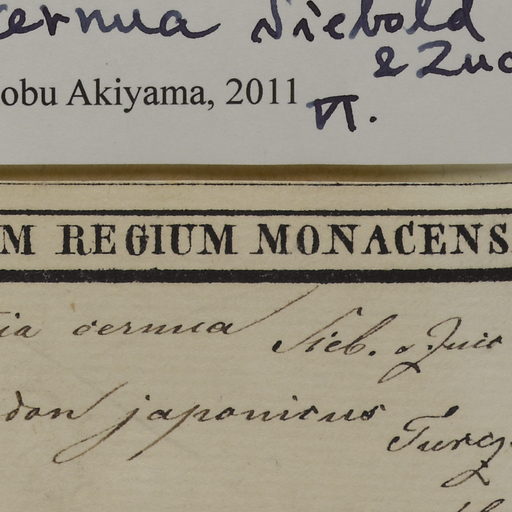 cernua Siebold
& Zuc
obu Akiyama, 2011 VI.
M REGIUM MONACENS
ia cernua Sieb. & Zucc
don japonicus Turcz.